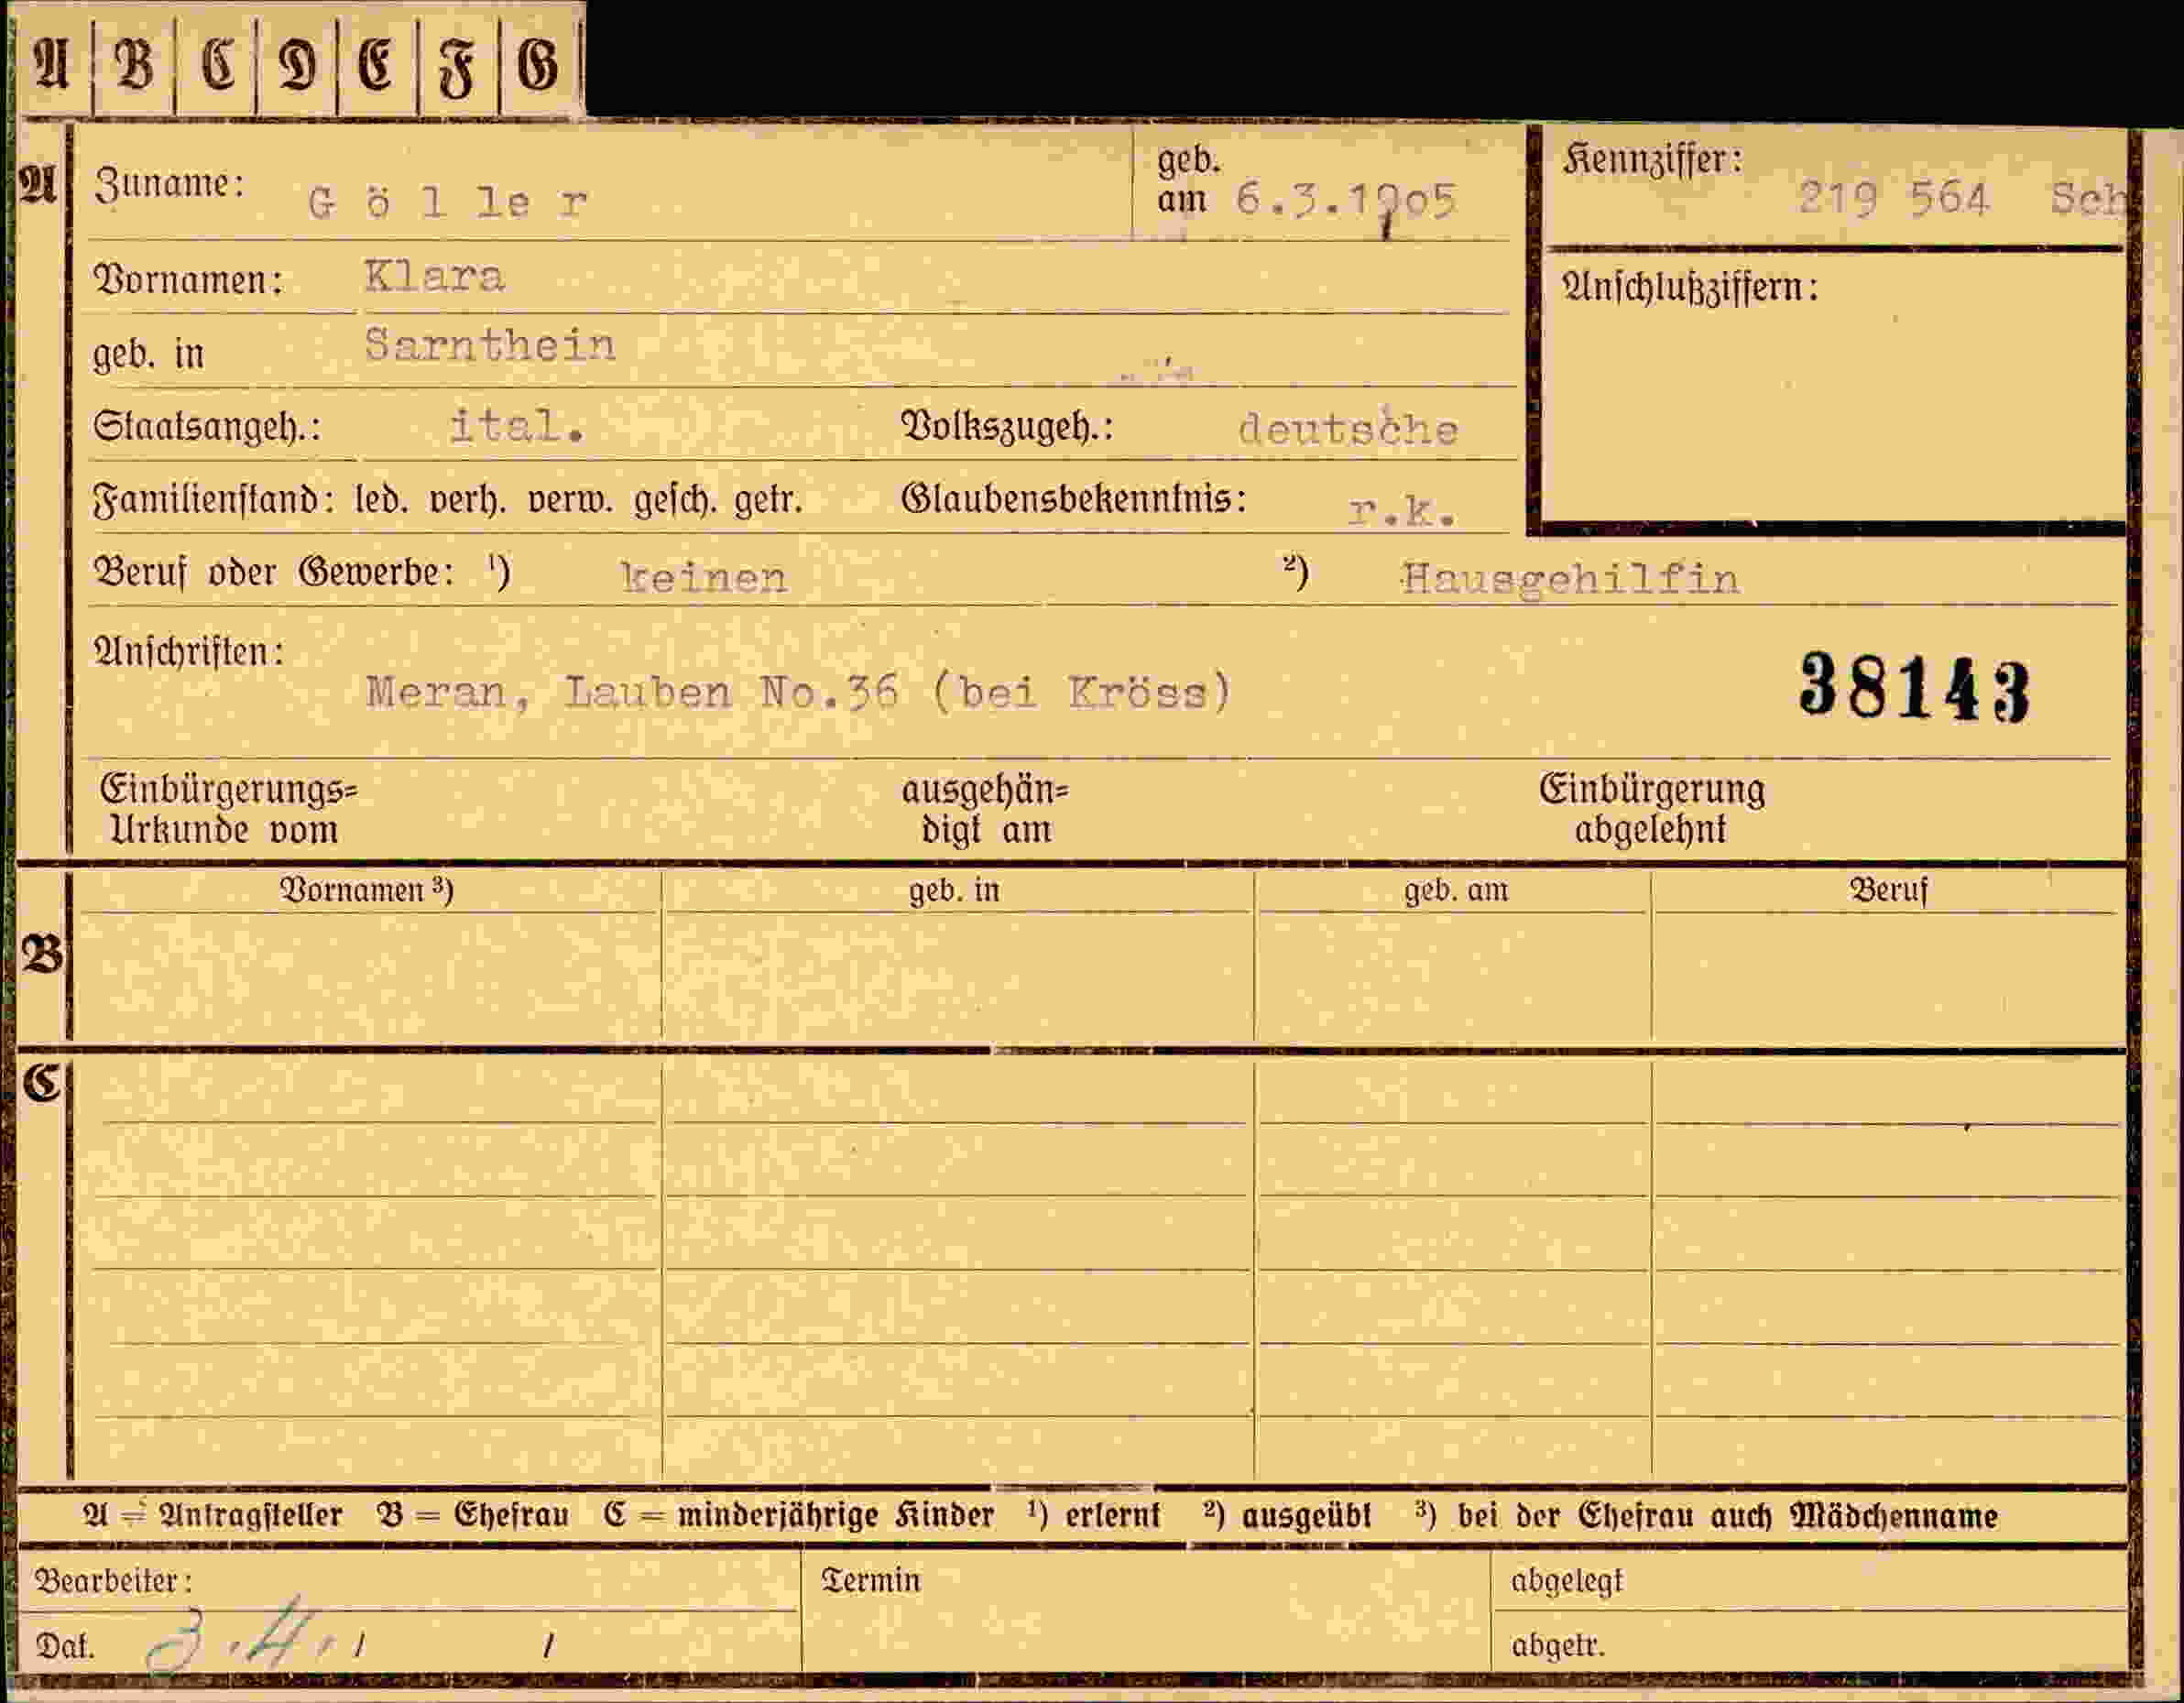 A B C D E F G
A Zuname: Göller geb. am 6.3.1905 Kennziffer: 219 564 Sch
Vornamen: Klara Anschlußziffern:
geb. in Sarnthein
Staatsangeh.: ital. Volkszugeh.: deutsche
Familienstand: led. verh. verw. gesch. getr. Glaubensbekenntnis: r.k.
Beruf oder Gewerbe: ¹) keinen ²) Hausgehilfin
Anschriften:
Meran, Lauben No.36 (bei Kröss) 38143
Einbürgerungs= ausgehän= Einbürgerung
Urkunde vom digt am abgelehnt
Vornamen ³) geb. in geb. am Beruf
B
C
A = Antragsteller B = Ehefrau C = minderjährige Kinder ¹) erlernt ²) ausgeübt ³) bei der Ehefrau auch Mädchenname
Bearbeiter: Termin abgelegt
Dat. 3.4. / / abgetr.